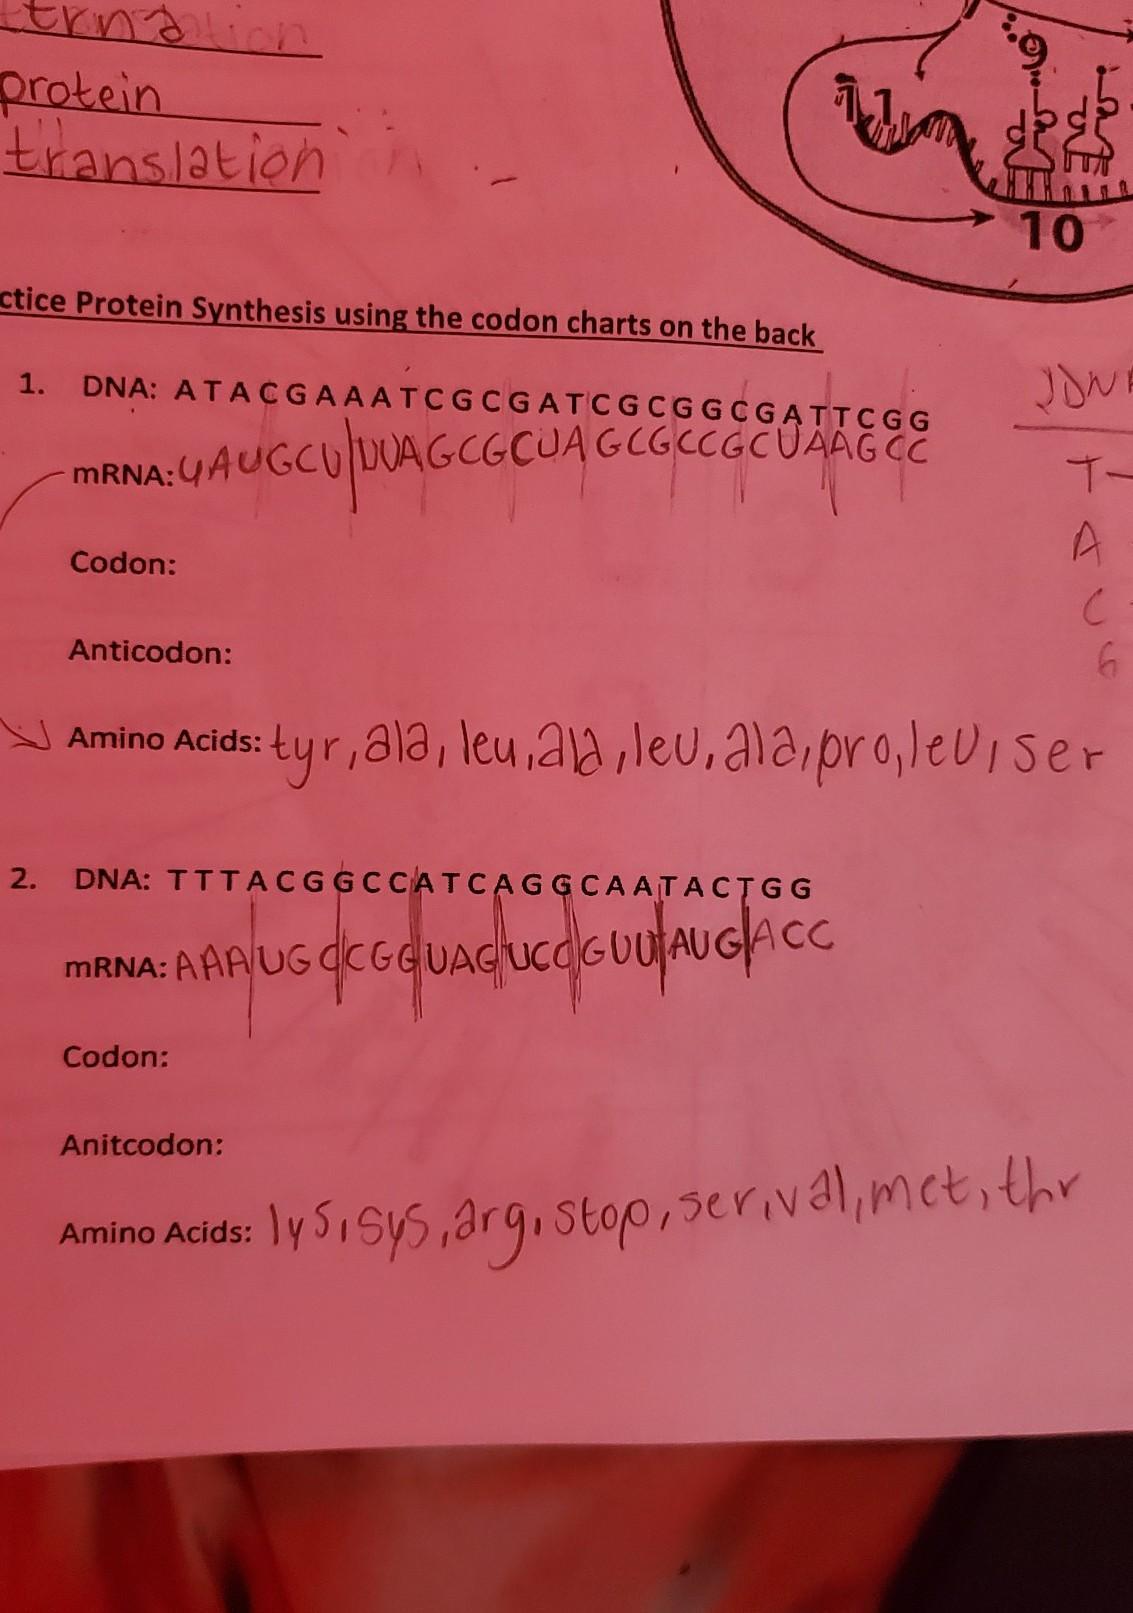 protein
translation
9
11
10
ctice Protein Synthesis using the codon charts on the back
1. DNA: A T A C G A A A T C G C G A T C G C G G C G A T T C G G
mRNA: UAUGCU|UUAGCGCUAGCGCCGCUAAGCC
Codon:
Anticodon:
Amino Acids: tyr, ala, leu, ala, leu, ala, pro, leu, ser
T-
A
C
G
2. DNA: T T T A C G G C C A T C A G G C A A T A C T G G
mRNA: AAA|UGC|CGG|UAG|UCC|GUU|AUG|ACC
Codon:
Anitcodon:
Amino Acids: lys, sys, arg, stop, ser, val, met, thr